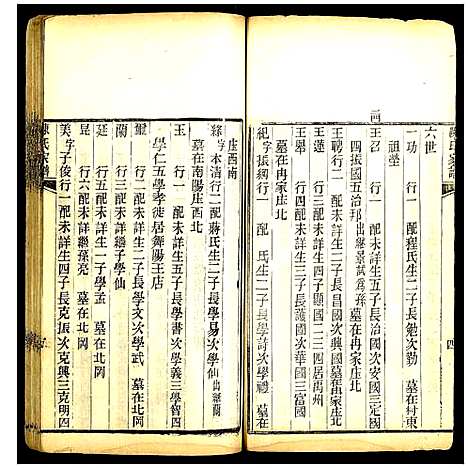 陳氏家譜
四
六世
一功 行二配程氏生二子長勉次勤 墓在村東
祖塋
王召 行一配未詳生五子長治國次安國三定國
四振國五治邦出繼景試為孫墓在冉家庄北
王聘行二 配未詳生二子長昌國次興國墓在冉家庄北
王蓮 行一配未詳生四子顯國二三四居禹州
王舉 行二配未詳生三子長護國次華國三富國
墓在冉家庄北
紀字振綱行一 配 氏生二子長學詩次學禮 墓在
庄西南
綵字本清行二配蔣氏生二子長學易次學仙出繼蘭
墓在南陽庄西北
王 行一 配未詳生五子長學書次學義三學智四
學仁五學孝徙居舞陽王店
璽 行一配未詳生二子長學文次學武 墓在北岡
蘭 行二配未詳繼子學仙
岱 行六配未詳生一子學孟 墓在北岡
昆 行二配未詳繼孫亮 墓在北岡
美字子俊行一配未詳生四子長克振次克興三克明四
陳氏家譜